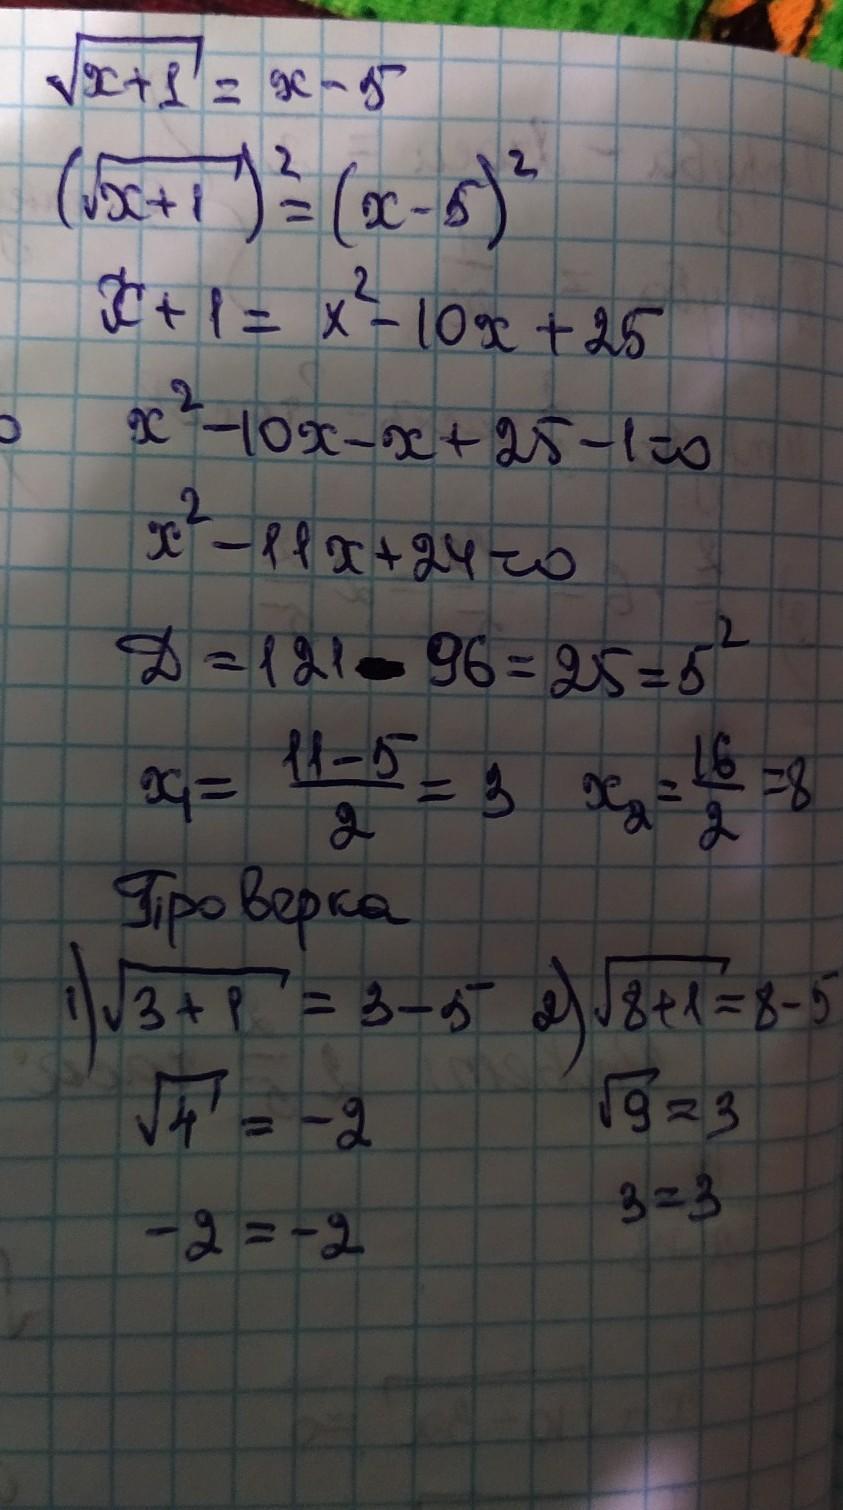 √(x+1) = x - 5
(√(x+1))² = (x - 5)²
x + 1 = x² - 10x + 25
x² - 10x - x + 25 - 1 = 0
x² - 11x + 24 = 0
D = 121 - 96 = 25 = 5²
x₁ = (11 - 5)/2 = 3 x₂ = 16/2 = 8
Проверка
1) √(3 + 1) = 3 - 5 2) √(8+1) = 8 - 5
√4 = -2 √9 = 3
-2 = -2 3 = 3